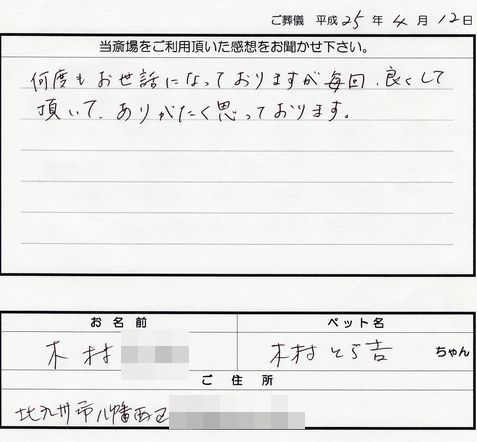 ご葬儀 平成25年4月12日
当斎場をご利用頂いた感想をお聞かせ下さい。
何度もお世話になっておりますが毎回、良くして
頂いて、ありがたく思っております。
お名前 ペット名
木村 木村とら吉 ちゃん
ご住所
北九州市八幡西区